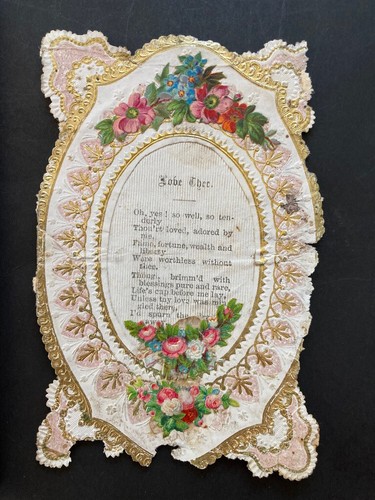 Love Thee.
Oh, yes! so well, so ten-
derly
Thou'rt loved, adored by
me,
Fame, fortune, wealth and
liberty
Were worthless without
thee.
Though brimm'd with
blessings pure and rare,
Life's cup before me lay,
Unless thy love was min-
gled there,
I'd spurn the